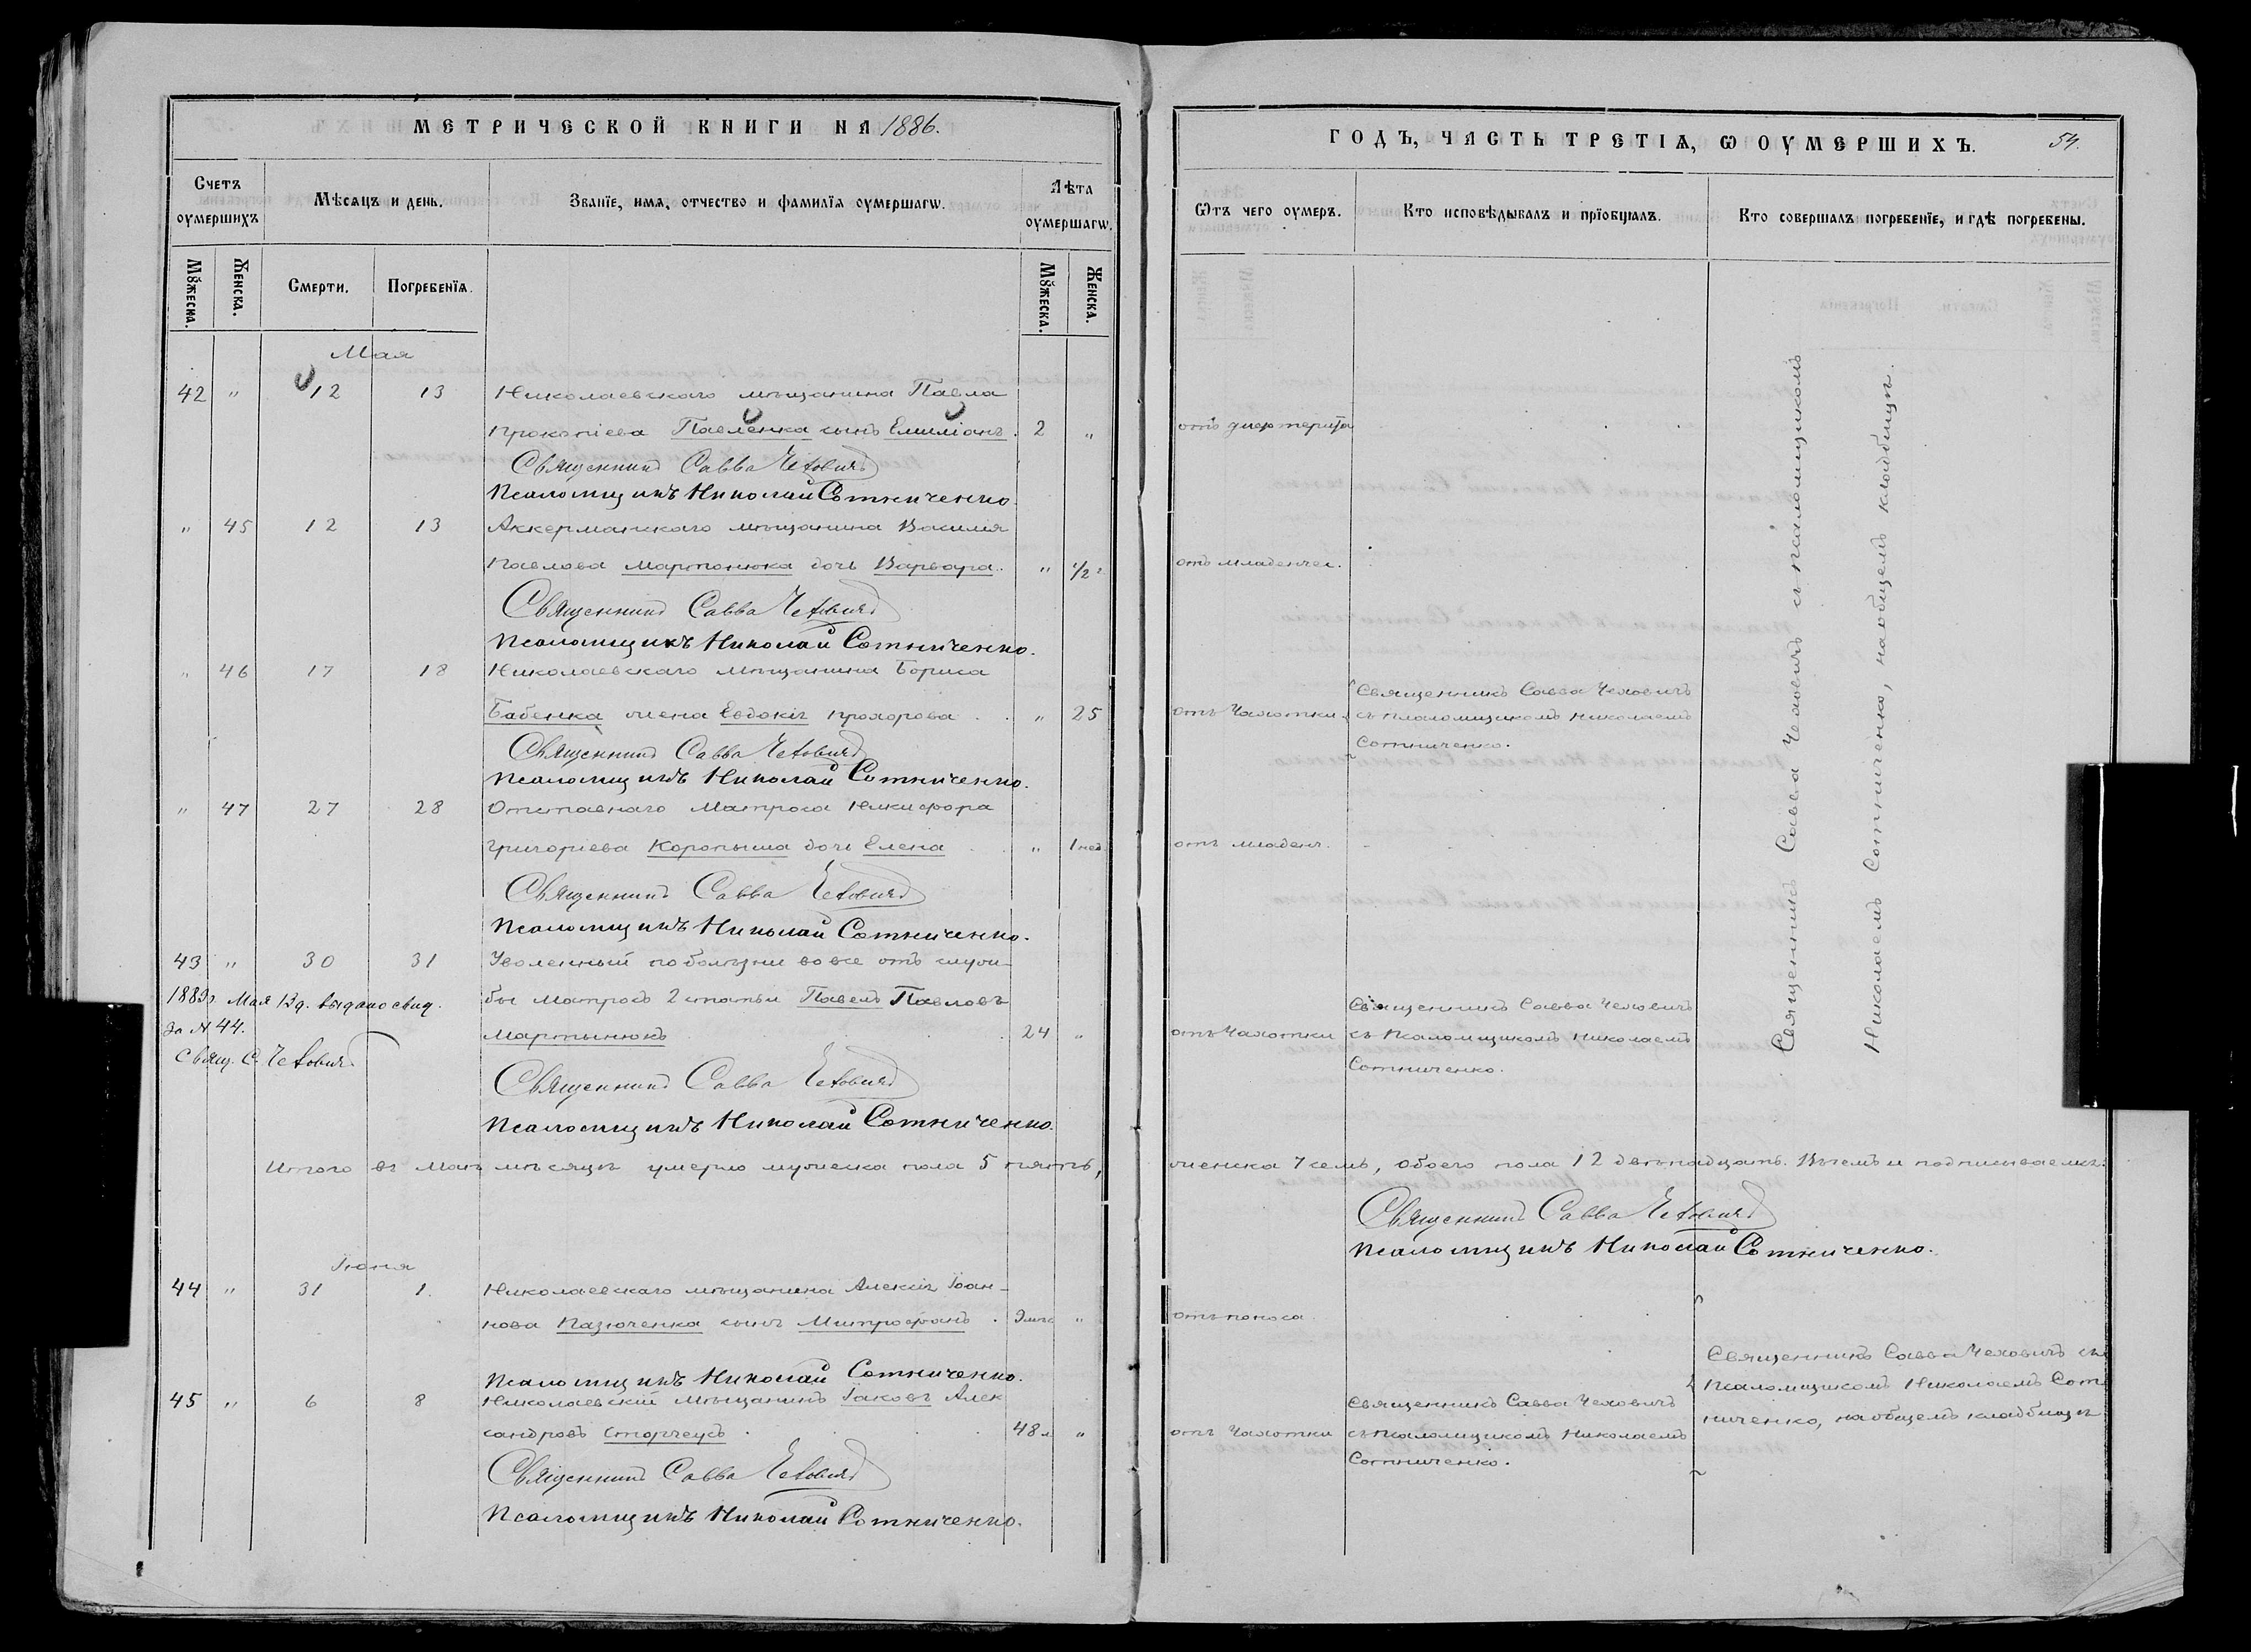 МЕТРИЧЕСКОЙ КНИГИ НА 1886.
Счетъ оумершихъ
Мѣсяцъ и день.
Званїе, имя, отчество и фамилїя оумершагѡ.
Лѣта оумершагѡ.
Мꙋжеска.
Женска.
Смерти.
Погребенїя.
Мꙋжеска.
Женска.
Мая
42 " 12 13 Николаевскаго мѣщанина Павла
Прокопіева Павленка сынъ Емиліанъ. 2 "
Священникъ Савва Чеховичъ
Псаломщикъ Николай Сотниченко.
" 45 12 13 Аккерманскаго мѣщанина Василія
Павлова Мартонюка дочь Варвара. " 1/2 г
Священникъ Савва Чеховичъ
Псаломщикъ Николай Сотниченко.
" 46 17 18 Николаевскаго мѣщанина Бориса
Бабенка жена Евдокія Прохорова . . " 25
Священникъ Савва Чеховичъ
Псаломщикъ Николай Сотниченко.
" 47 27 28 Отставнаго Матроса Никифора
Григоріева Коропыша дочь Елена . . " 1 нед.
Священникъ Савва Чеховичъ
Псаломщикъ Николай Сотниченко.
43 " 30 31 Уволенный по болѣзни вовсе отъ служ-
бы Матросъ 2 статьи Павелъ Павловъ
Мартынюкъ . . 24 "
Мая 13 д. выдано свид.
за N 44.
Свящ. С. Чеховичъ
Священникъ Савва Чеховичъ
Псаломщикъ Николай Сотниченко.
Итого въ Маѣ мѣсяцѣ умерло мужеска пола 5 пять,
Іюня
44 " 31 1. Николаевскаго мѣщанина Алексія Іоан-
нова Казюченка сынъ Митрофанъ . "
Псаломщикъ Николай Сотниченко.
45 " 6 8 Николаевскій Мѣщанинъ Іаковъ Алек
сандровъ Сторчеусъ . . . 48 л "
Священникъ Савва Чеховичъ
Псаломщикъ Николай Сотниченко.
ГОДЪ, ЧАСТЬ ТРЕТІѦ, Ѡ ОУМЕРШИХЪ. 54.
Ѿтъ чего оумеръ.
Кто исповѣдывалъ и прїобщалъ.
Кто совершалъ погребенїе, и гдѣ погребены.
отъ дифтерита
отъ младенчес.
отъ Чахотки
Священникъ Савва Чеховичъ
съ псаломщикомъ Николаемъ
Сотниченко.
отъ младенч.
отъ Чахотки
Священникъ Савва Чеховичъ
съ Псаломщикомъ Николаемъ
Сотниченко.
Священникъ Савва Чеховичъ съ псаломщикомъ
Николаемъ Сотниченко, на общемъ кладбищѣ.
женска 7 семь, обоего пола 12 двѣнадцать. Въ чемъ и подписываемся:
Священникъ Савва Чеховичъ
Псаломщикъ Николай Сотниченко.
отъ поноса
отъ Чахотки
Священникъ Савва Чеховичъ
съ Псаломщикомъ Николаемъ
Сотниченко.
Священникъ Савва Чеховичъ съ
Псаломщикомъ Николаемъ Сот
ниченко, на общемъ кладбищѣ